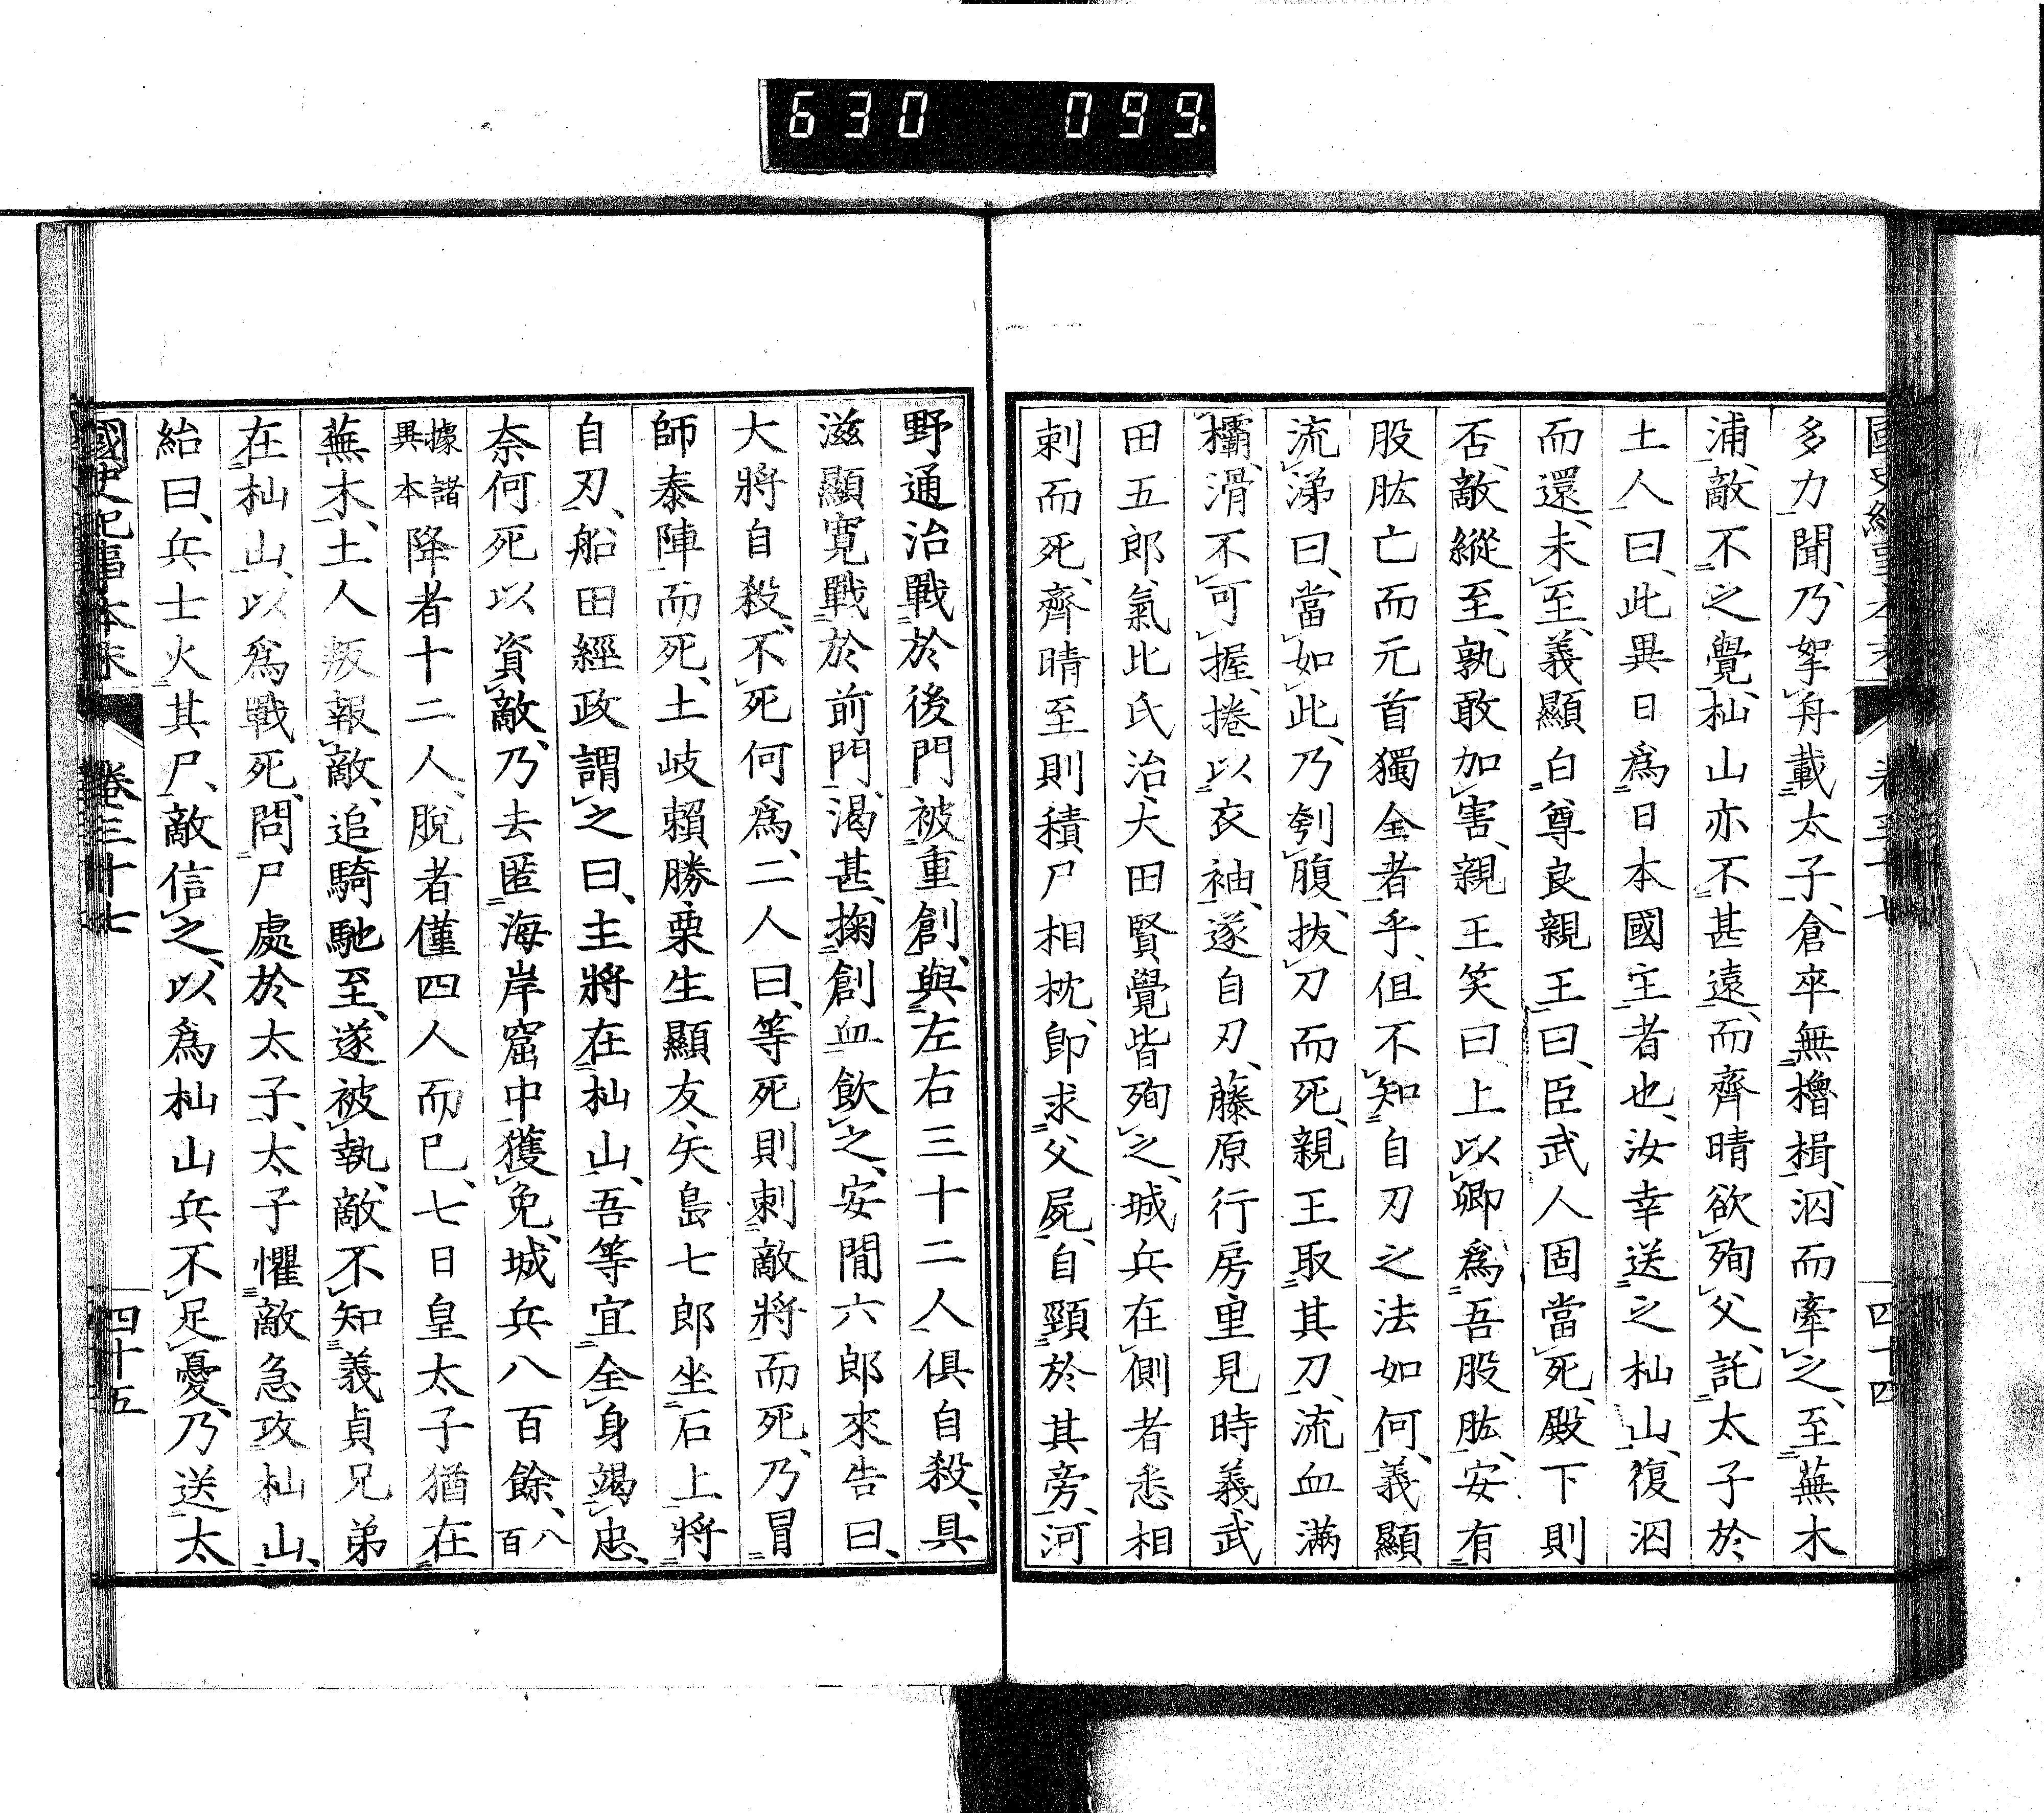 630 099.
國史紀事本末 卷三十七 四十四
多力、聞、乃挐舟載太子、倉卒無櫓楫、泅而牽之、至蕪木
浦、敵不之覺、杣山亦不甚遠、而齊晴欲殉父、託太子於
土人曰、此異日爲日本國主者也、汝幸送之杣山、復泅
而還、未至、義顯白尊良親王曰、臣武人固當死、殿下則
否、敵縱至、孰敢加害、親王笑曰、上以卿爲吾股肱、安有
股肱亡而元首獨全者乎、但不知自刃之法如何、義顯
流涕曰、當如此、乃刳腹、拔刀而死、親王取其刀、流血滿
欛、滑不可握、捲以衣袖、遂自刃、藤原行房里見時義武
田五郎氣比氏治大田賢覺皆殉之、城兵在側者悉相
刺而死、齊晴至則積尸相枕、卽求父屍、自頸於其旁、河
野通治戰於後門、被重創、與左右三十二人俱自殺、具
滋顯寛戰於前門、渴甚、掬創血飲之、安間六郎來告曰、
大將自殺、不死何爲、二人曰、等死則刺敵將而死、乃冒
師泰陣而死、土岐賴勝栗生顯友矢島七郎坐石上、將
自刃、船田經政謂之曰、主將在杣山、吾等宜全身竭忠、
奈何死以資敵、乃去匿海岸窟中、獲免、城兵八百餘、八百
據諸異本降者十二人、脫者僅四人而已、七日皇太子猶在
蕪木、土人叛報敵、追騎馳至、遂被執、敵不知義貞兄弟
在杣山、以爲戰死、問尸處於太子、太子懼敵急攻杣山、
紿曰、兵士火其尸、敵信之、以爲杣山兵不足憂、乃送太
國史紀事本末 卷三十七 四十五